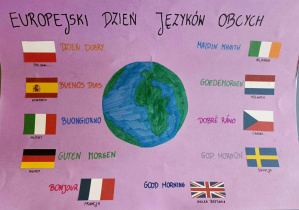 EUROPEJSKI DZIEŃ JĘZYKÓW OBCYCH
DZIEŃ DOBRY
POLSKA
BUENOS DIAS
BUONGIORNO
GUTEN MORGEN
BONJOUR
FRANCJA
GOOD MORNING
WIELKA BRYTANIA
MAIDIN MHAITH
IRLANDIA
GOEDEMORGEN
DOBRÉ RÁNO
GOD MORGON
SZWECJA